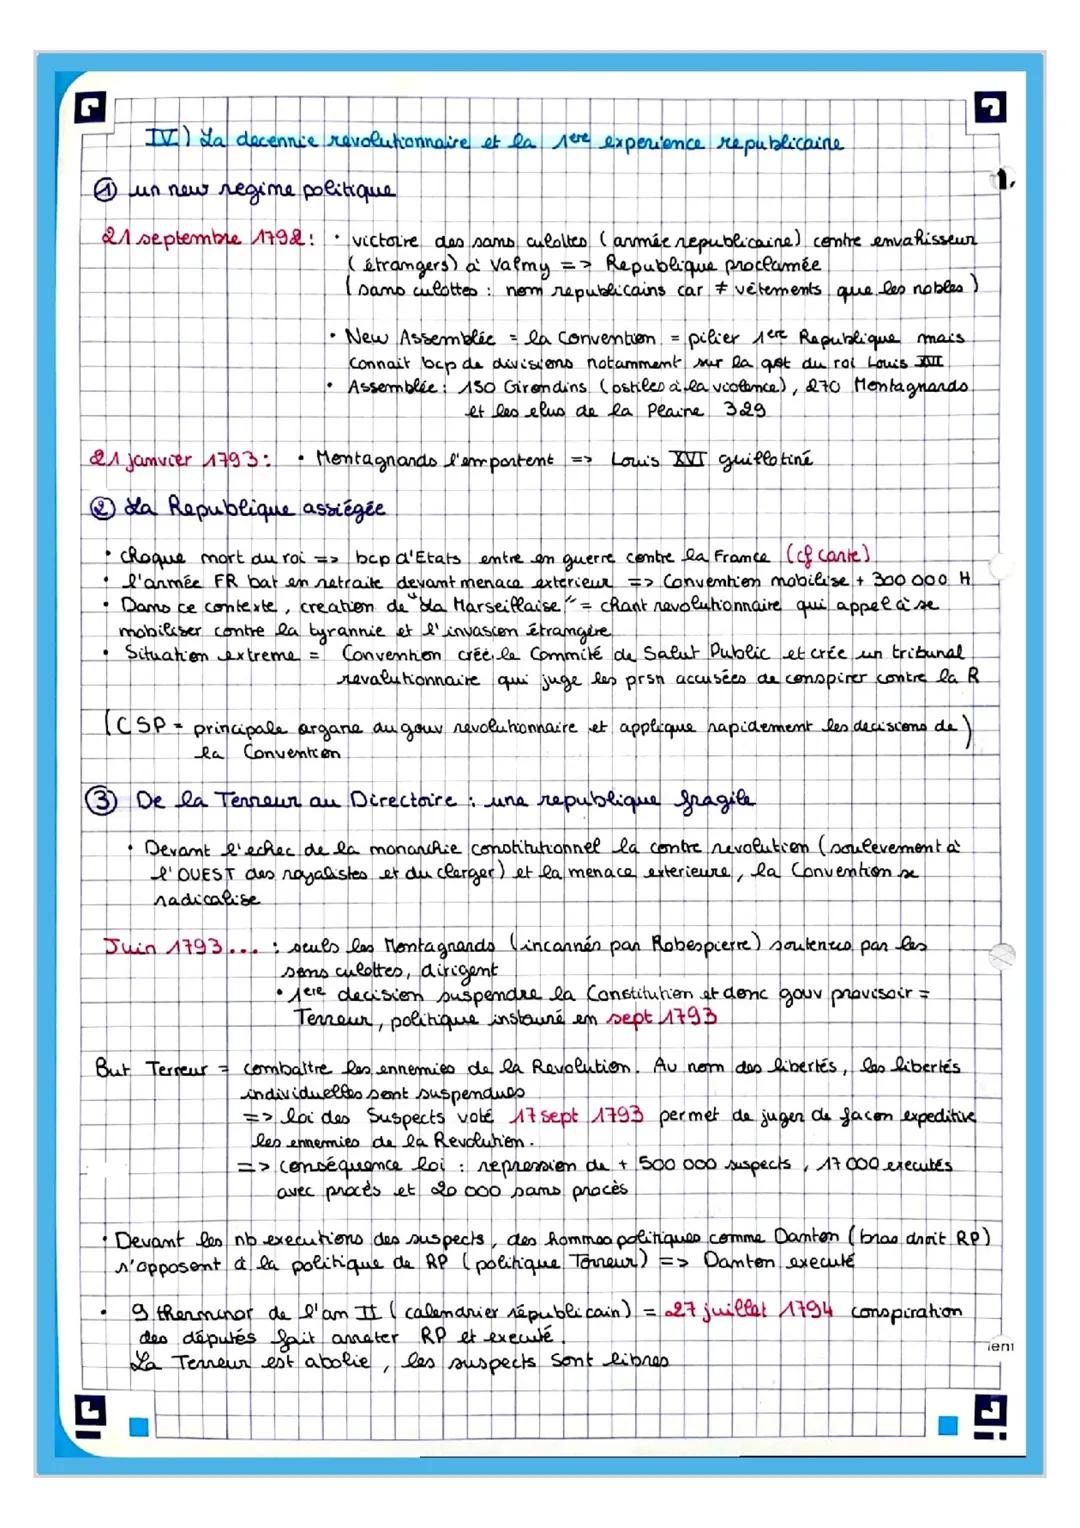 IV) La decennie revolutionnaire et la 1ere experience republicaine
1.
① un new regime politique
21 septembre 1792: • victoire des sans culottes (armée republicaine) contre envahisseur
(étrangers) à Valmy => Republique proclamée
(sans culottes : nom republicains car ≠ vêtements que les nobles)
• New Assemblée = la Convention = pilier 1ere Republique mais
connait bcp de divisions notamment sur la qst du roi Louis XVI
• Assemblée : 150 Girondins (ostiles à la violence), 270 Montagnards
et les elus de la Plaine 329
21 janvier 1793: • Montagnards l'emportent => Louis XVI guillotiné
② La Republique assiégée
• Choque mort du roi => bcp d'Etats entre en guerre contre la France (cf carte)
• l'armée FR bat en retraite devant menace exterieur => Convention mobilise + 300 000 H
• Dans ce contexte, creation de "La Marseillaise" = chant revolutionnaire qui appel à se
mobiliser contre la tyrannie et l'invasion étrangère
• Situation extreme = Convention crée le Commité de Salut Public et crée un tribunal
revolutionnaire qui juge les prsn accusées de conspirer contre la R
(CSP = principale organe du gouv revolutionnaire et applique rapidement les decisions de)
la Convention
③ De la Terreur au Directoire : une republique fragile
• Devant l'echec de la monarchie constitutionnel la contre revolution (soulevement à
l'OUEST des royalistes et du clerger) et la menace exterieure, la Convention se
radicalise
Juin 1793... : seuls les Montagnards (incarnés par Robespierre) soutenus par les
sans culottes, dirigent
• 1ere decision suspendre la Constitution et donc gouv provisoir =
Terreur, politique instauré en sept 1793
But Terreur = combattre les ennemies de la Revolution. Au nom des libertés, les libertés
individuelles sont suspendues
=> loi des Suspects voté 17 sept 1793 permet de juger de facon expeditive
les ennemies de la Revolution.
=> conséquence loi : repression de + 500 000 suspects, 17 000 executés
avec procès et 20 000 sans procès
• Devant les nb executions des suspects, des hommes politiques comme Danton (bras droit RP)
s'opposent à la politique de RP (politique Terreur) => Danton executé
• 9 therminor de l'an II (calendrier républicain) = 27 juillet 1794 conspiration
des députés fait arreter RP et executé.
La Terreur est abolie, les suspects sont libres
ient